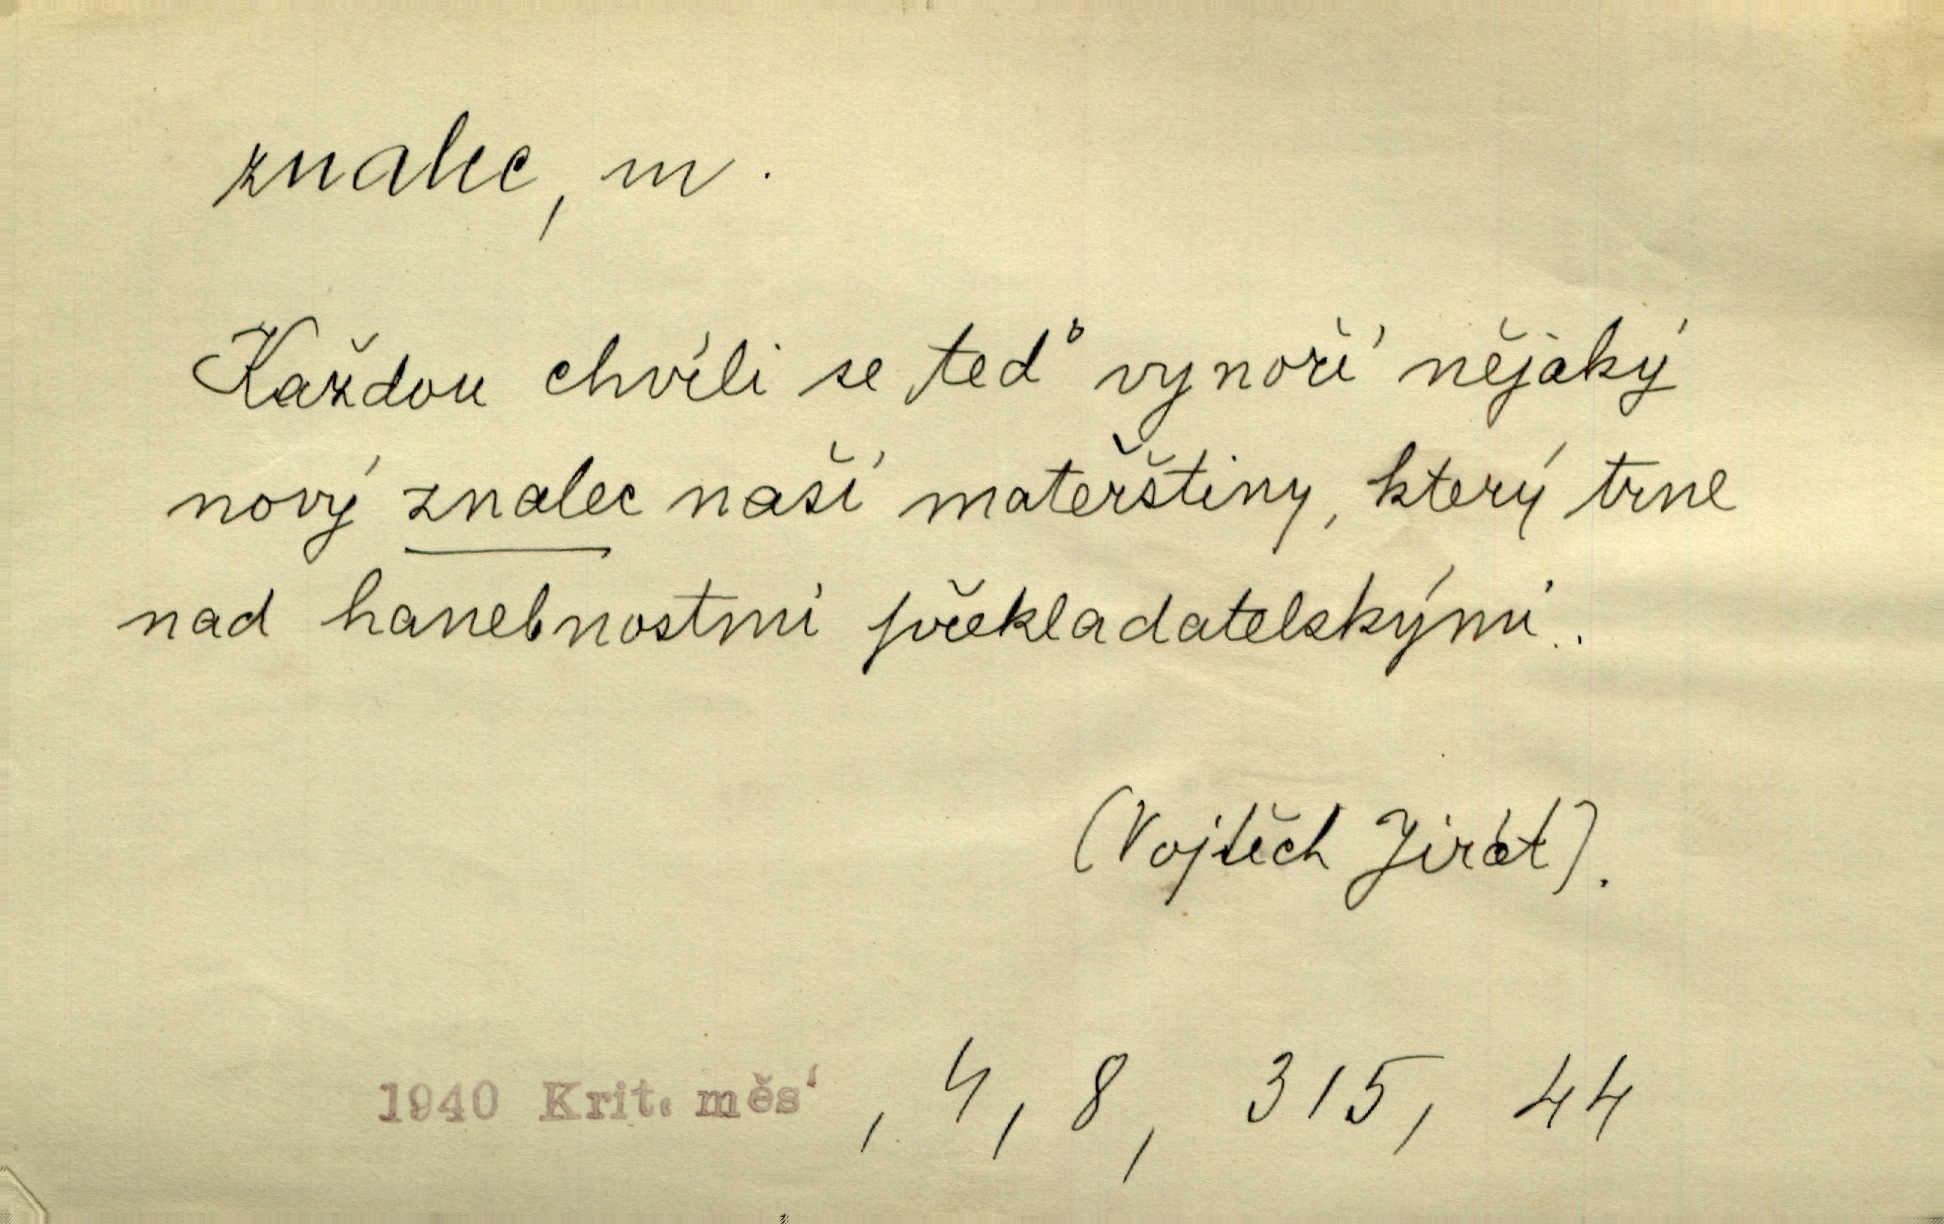 znalec, m.
Každou chvíli se teď vynoří nějaký
nový znalec naší mateřštiny, který trne
nad hanebnostmi překladatelskými..
(Vojtěch Jirát).
1940 Krit. měs', 4, 8, 315, 44